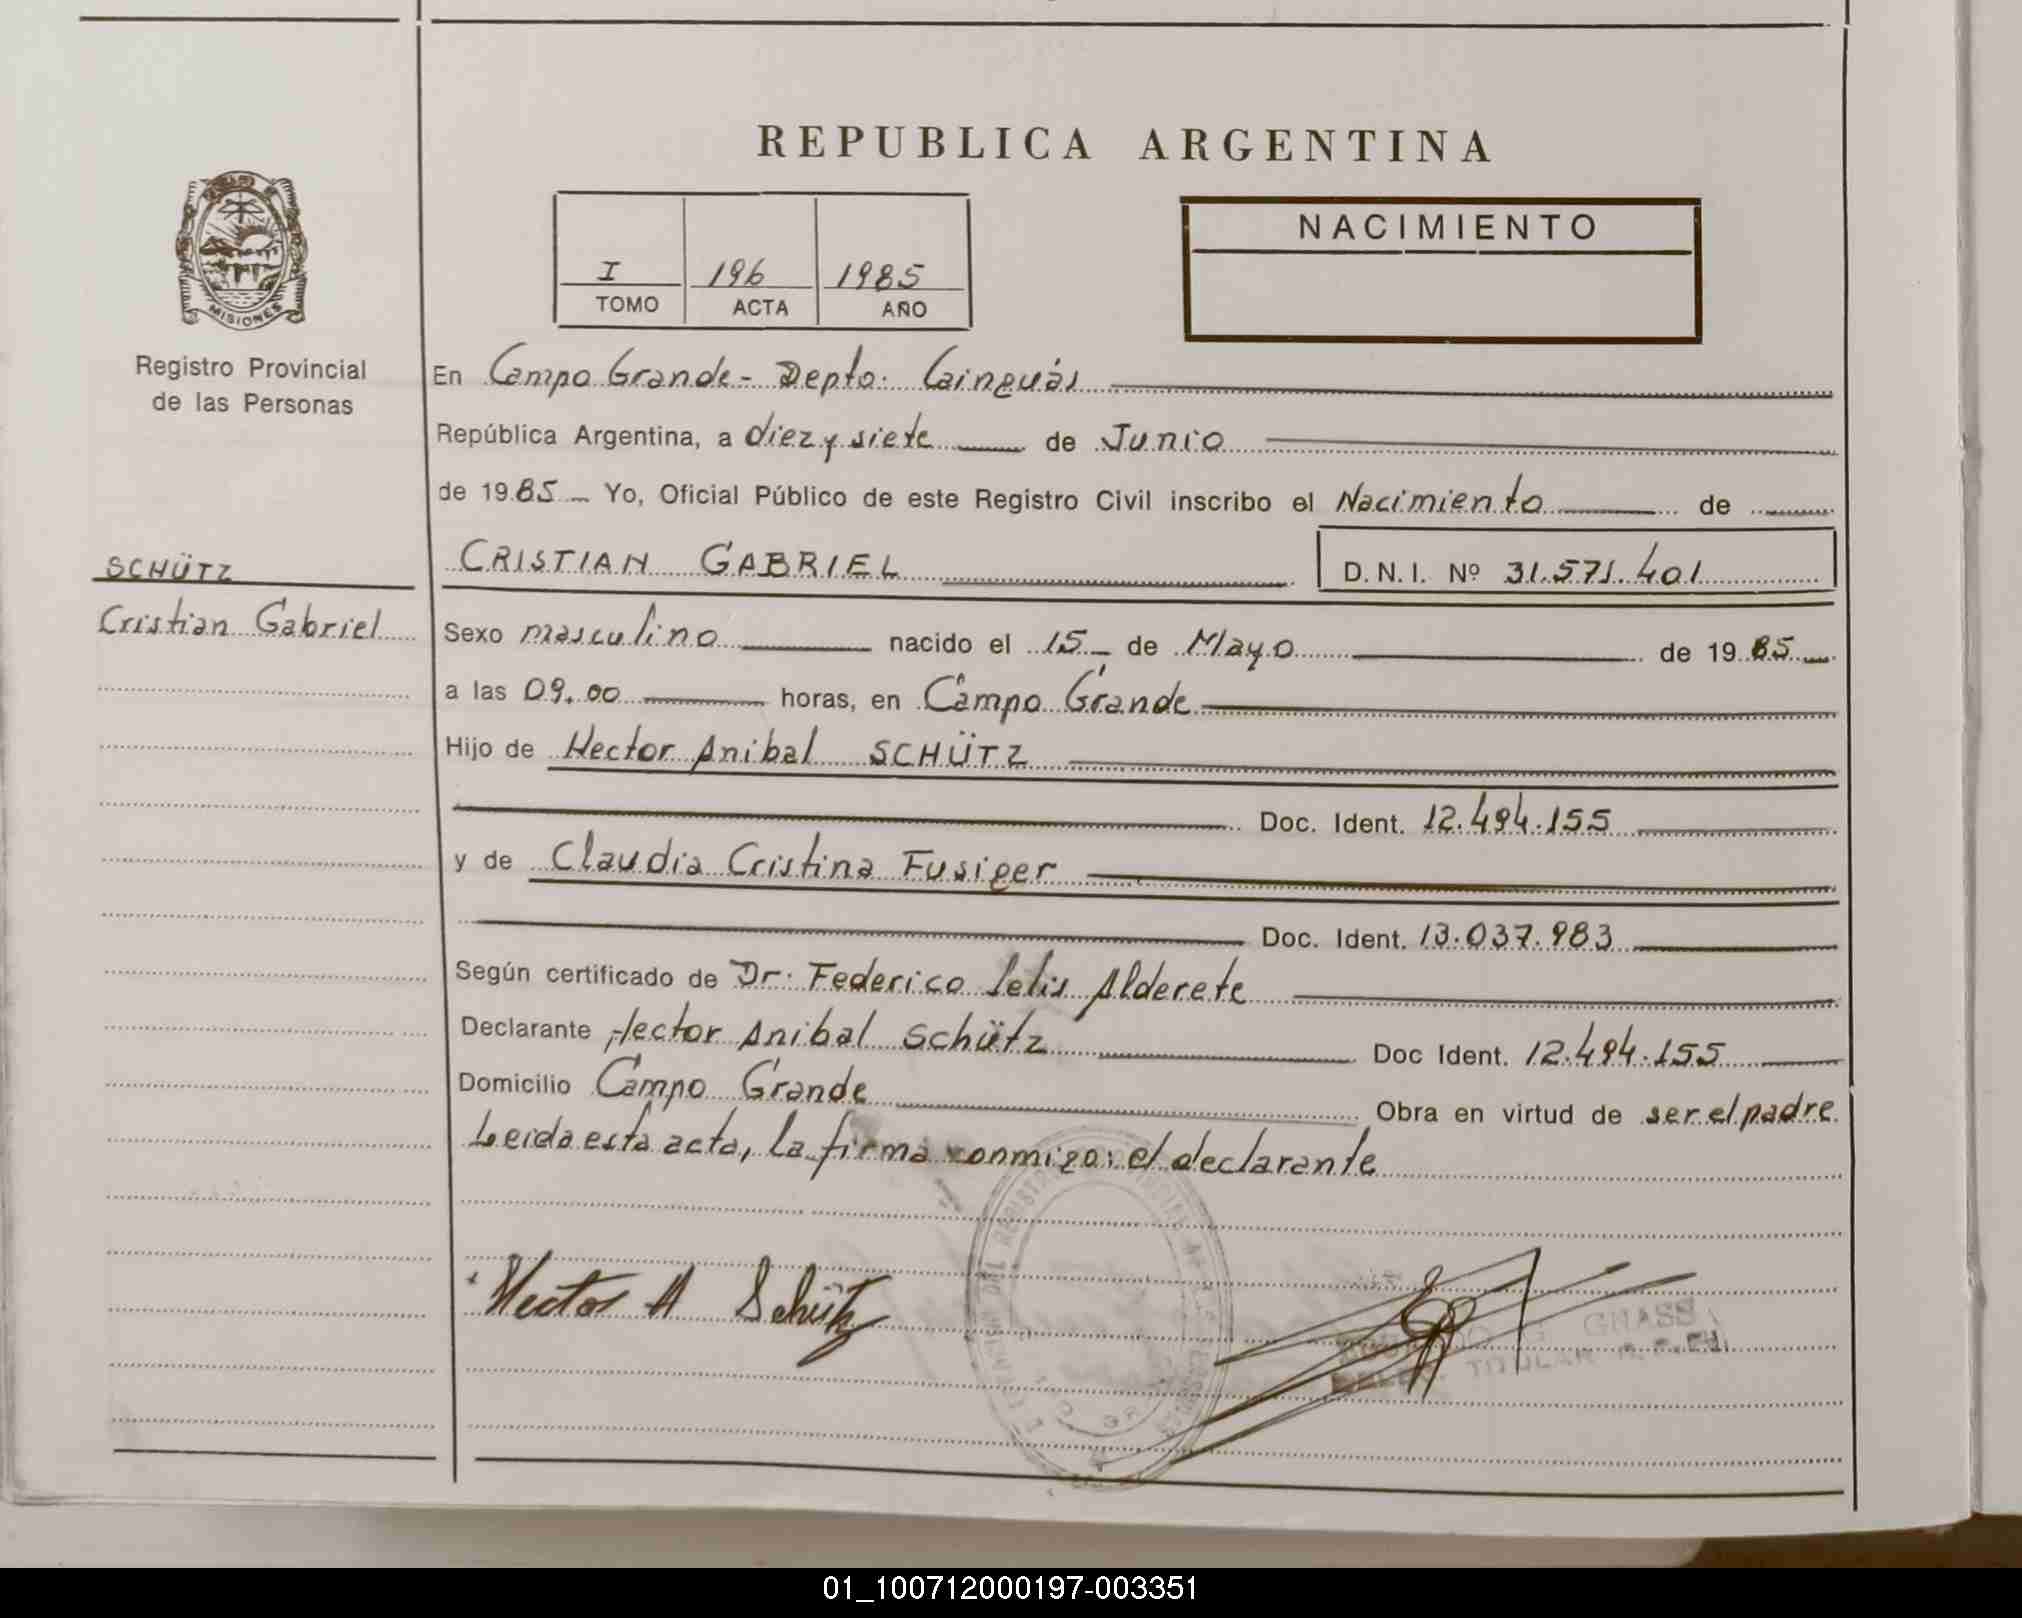 REPUBLICA ARGENTINA
MISIONES
Registro Provincial
de las Personas
I 196 1985
TOMO ACTA AÑO
NACIMIENTO
En Campo Grande - Depto. Cainguás
República Argentina, a diez y siete de Junio
de 1985 Yo, Oficial Público de este Registro Civil inscribo el Nacimiento de
SCHÜTZ
Cristian Gabriel
CRISTIAN GABRIEL D.N.I. Nº 31.571.401
Sexo masculino nacido el 15 de Mayo de 1985
a las 09.00 horas, en Campo Grande
Hijo de Hector Anibal SCHÜTZ
Doc. Ident. 12.494.155
y de Claudia Cristina Fusiger
Doc. Ident. 13.037.983
Según certificado de Dr: Federico Alderete
Declarante Hector Anibal Schütz Doc Ident. 12.494.155
Domicilio Campo Grande Obra en virtud de ser el padre
Leida esta acta, la firma conmigo: el declarante
Hector A Schütz
G. GNASS
TITULAR
01_100712000197-003351